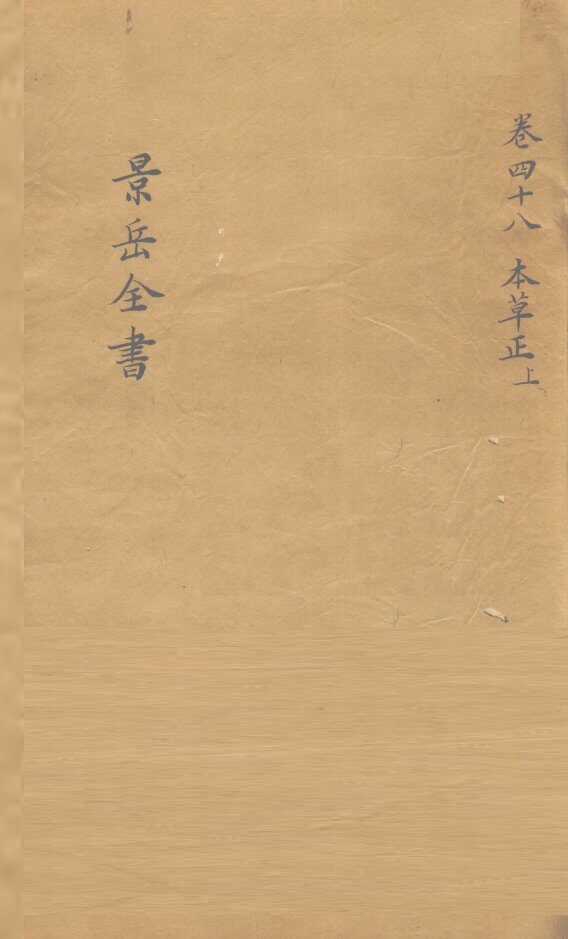 卷四十八 本草正上
景岳全書